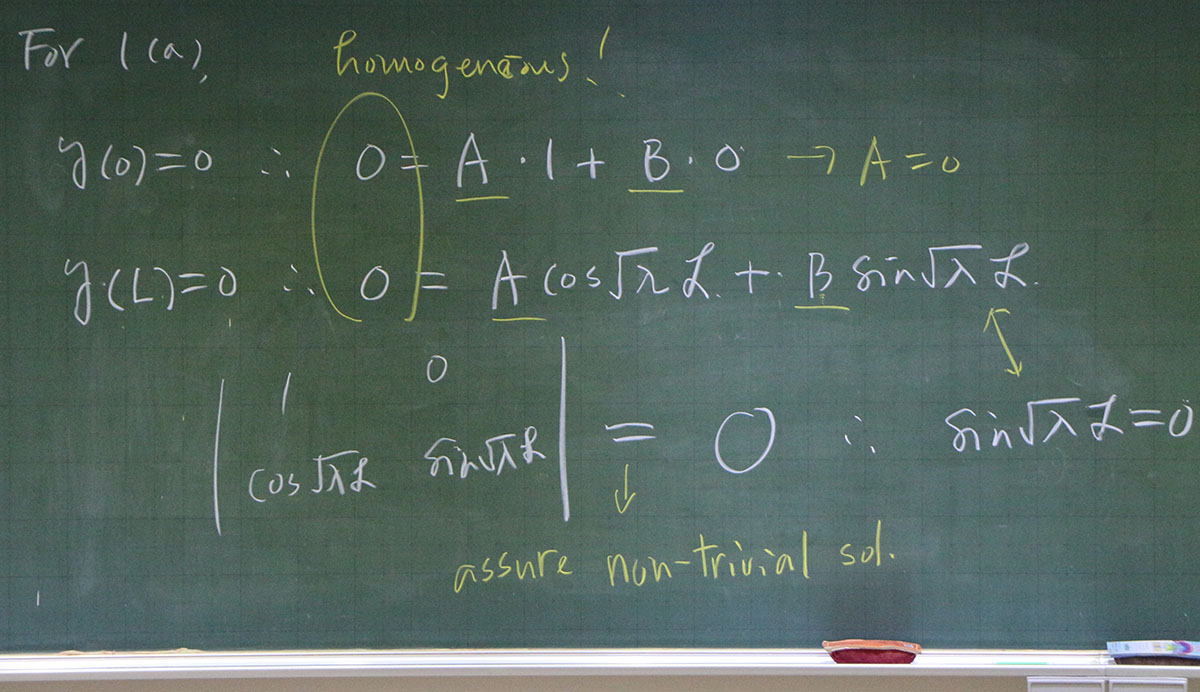 For 1(a), homogeneous!
y(0)=0 ∴ 0 = A · 1 + B · 0 → A = 0
y(L)=0 ∴ 0 = A cos√λ L + B sin√λ L
| 1 0 |
| cos√λL sin√λL | = 0 ∴ sin√λ L = 0
assure non-trivial sol.